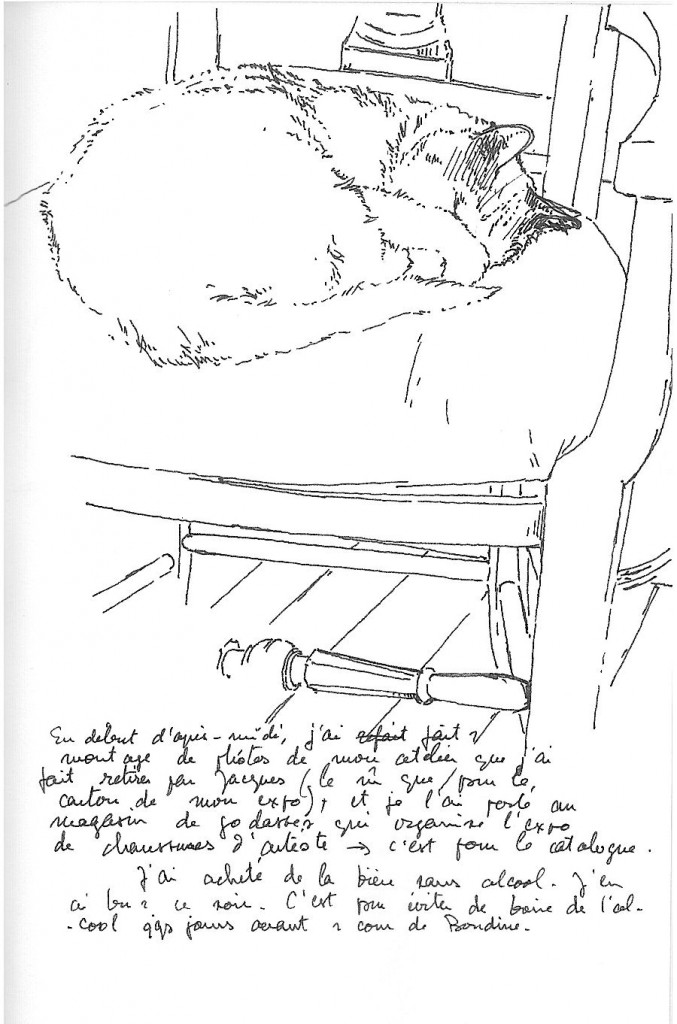 En début d'après-midi, j'ai refait fait 1
montage de photos de mon atelier que j'ai
fait retirer par Jacques (le m̂ que pour le
carton de mon expo), et je l'ai posté au
magasin de godasses qui organise l'expo
de chaussures d'artiste → c'est pour le catalogue.
J'ai acheté de la bière sans alcool. J'en
ai bu 2 ce soir. C'est pour éviter de boire de l'al-
-cool qqs jours avant 1 cour de